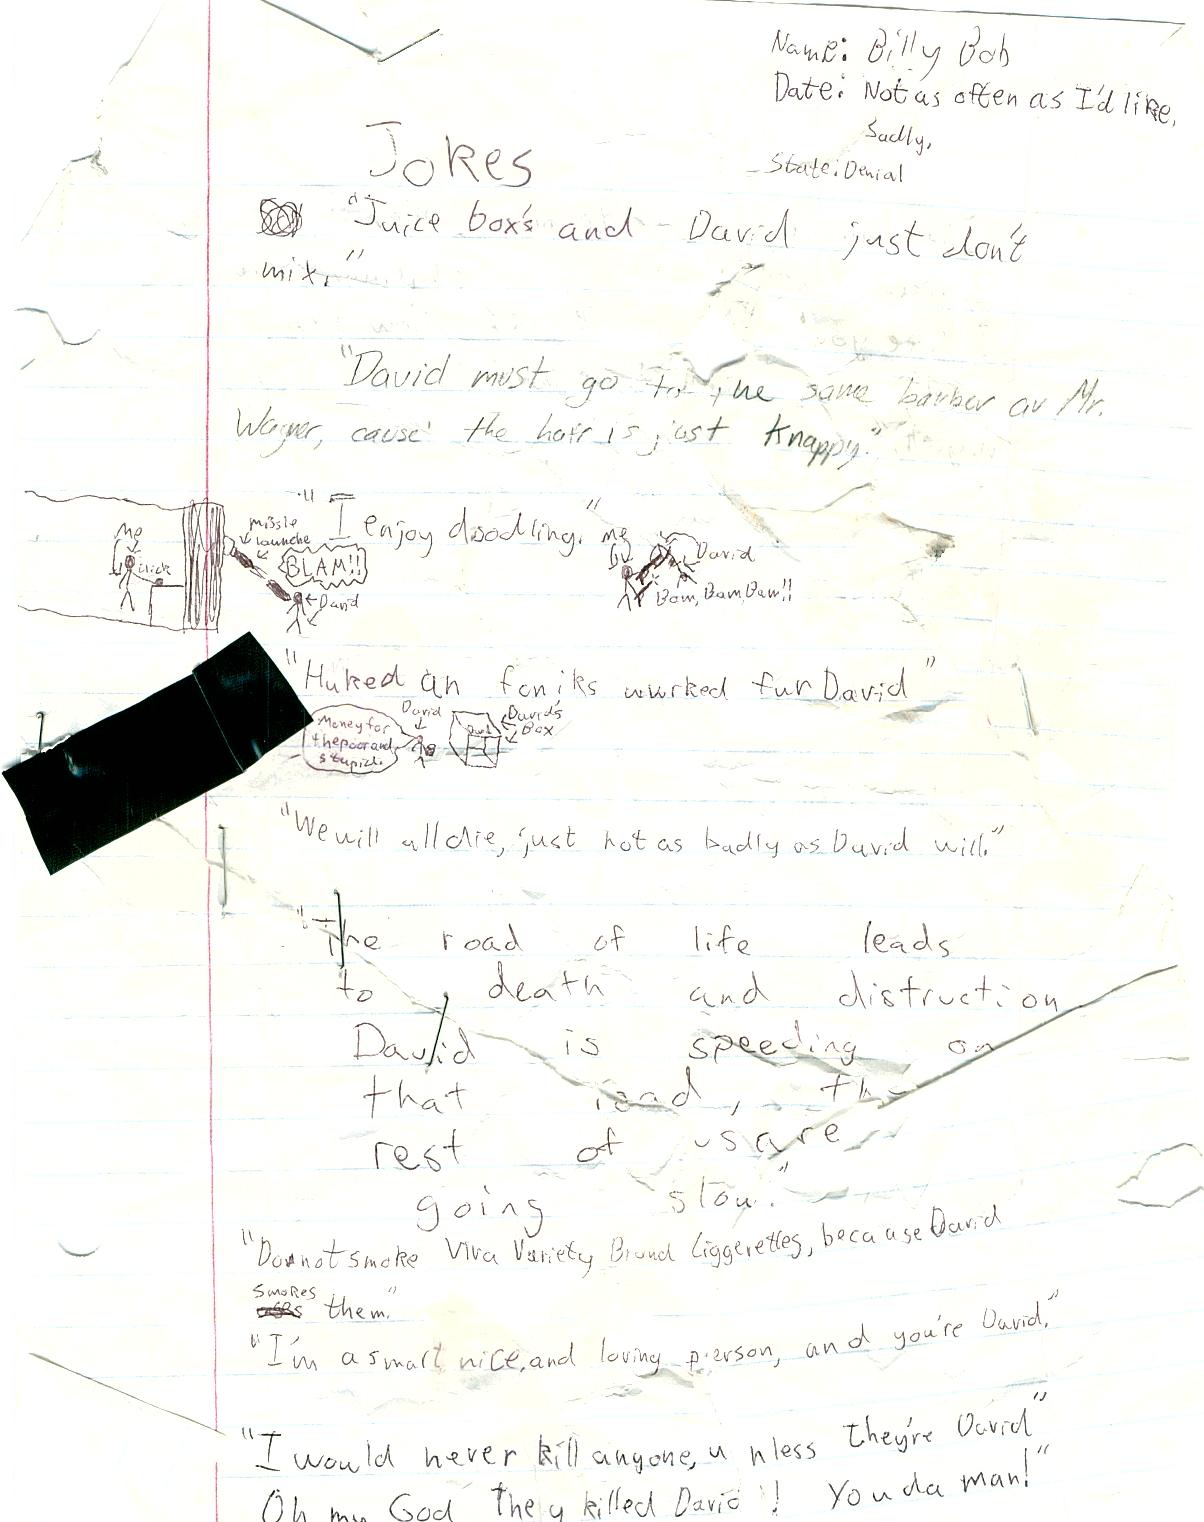 Name: Billy Bob
Date: Not as often as I'd like,
Sadly,
State: Denial
Jokes
"Juice box's and David just don't
mix."
"David must go to the same barber as Mr.
cause' the hair is just Knappy."
"I enjoy doodling."
Me
click
missle
launche
BLAM!!
David
me
David
Bam, Bam, Bam!!
"Huked an foniks wurked fur David"
Money for
the poor and
stupid.
David
David's
Box
"We will all die, just not as badly as David will."
"The road of life leads
to death and distruction
David is speeding on
that road, the
rest of us are
going slow."
"Do not smoke Viva Variety Brand Ciggerettes, because David
smokes
them."
"I'm a smart, nice, and loving person, and you're David."
"I would never kill anyone, unless they're David"
Oh my God They killed David! You da man!"